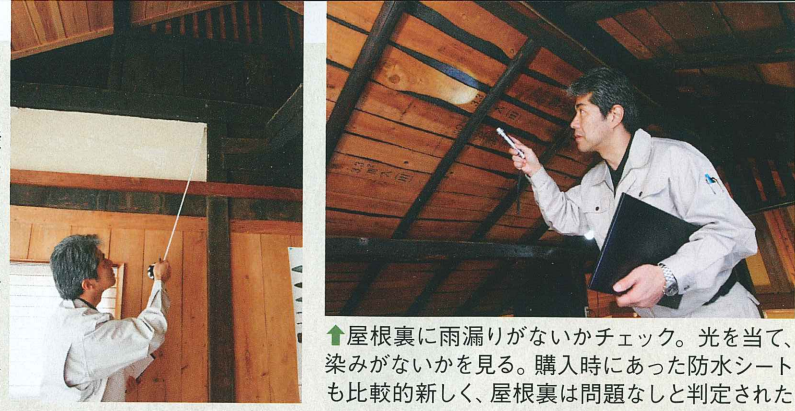 ⬆屋根裏に雨漏りがないかチェック。光を当て、
染みがないかを見る。購入時にあった防水シート
も比較的新しく、屋根裏は問題なしと判定された